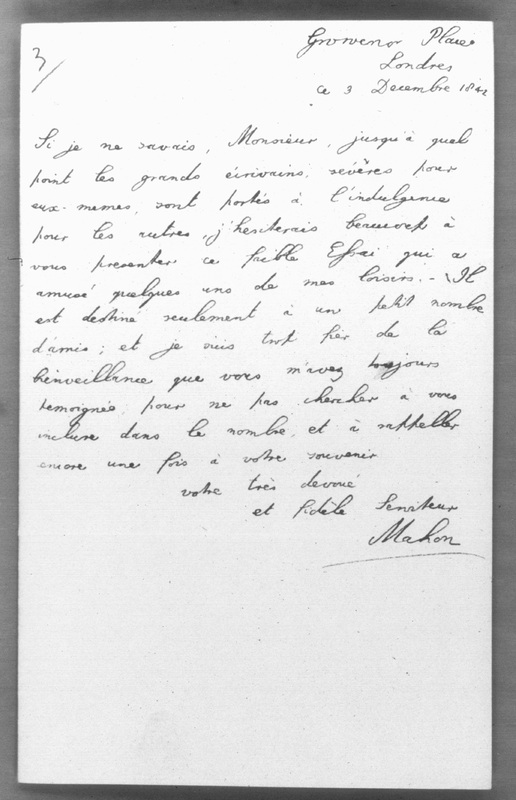 3/
Grosvenor Place
Londres
ce 3 Decembre 1842
Si je ne savais, Monsieur, jusqu'à quel
point les grands écrivains, sévères pour
eux-memes, sont portés à l'indulgence
pour les autres, j'hesiterais beaucoup à
vous presenter ce faible Essai qui a
amusé quelques uns de mes loisirs. - Il
est destiné seulement à un petit nombre
d'amis; et je suis trop fier de la
bienveillance que vous m'avez toujours
temoignée pour ne pas chercher à vous
inclure dans le nombre, et à rappeller
encore une fois à votre souvenir
votre très devoué
et fidèle Serviteur
Mahon